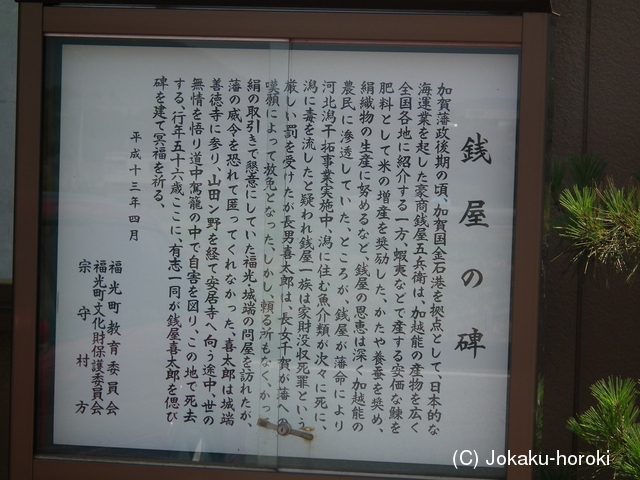 銭屋の碑
加賀藩政後期の頃、加賀国金石港を拠点として、日本的な
海運業を起した豪商銭屋五兵衛は、加越能の産物を広く
全国各地に紹介する一方、蝦夷などで産する安価な鰊を
肥料として米の増産を奨励した、かたや養蚕を奨め、
絹織物の生産に努めるなど、銭屋の恩恵は深く加越能の
農民に滲透していた、ところが、銭屋が藩命により
河北潟干拓事業実施中、潟に住む魚介類が次々に死に、
潟に毒を流したと疑われ銭屋一族は家財没収死罪という
厳しい罰を受けたが長男喜太郎は、長女千賀が藩への
嘆願によって放免となった、しかし、頼る所もなく、かつ
絹の取引きで懇意にしていた福光、城端の問屋を訪れたが、
藩の威令を恐れて匿ってくれなかった、喜太郎は城端
善徳寺に参り、山田ン野を経て安居寺へ向う途中、世の
無情を悟り道中駕籠の中で自害を図り、この地で死去
する、行年五十六歳ここに、有志一同が銭屋喜太郎を偲び
碑を建て冥福を祈る、
平成十三年四月
福光町教育委員会
福光町文化財保護委員会
宗守村方
(C) Jokaku-horoki